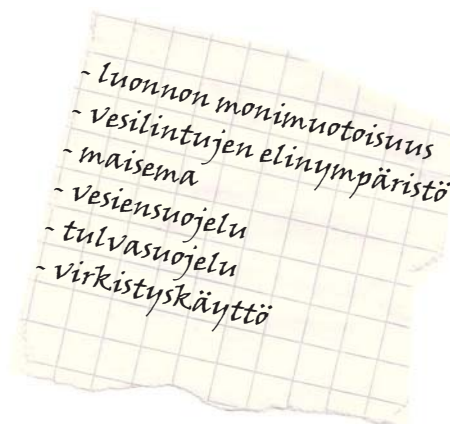 - luonnon monimuotoisuus
- vesilintujen elinympäristö
- maisema
- vesiensuojelu
- tulvasuojelu
- virkistyskäyttö